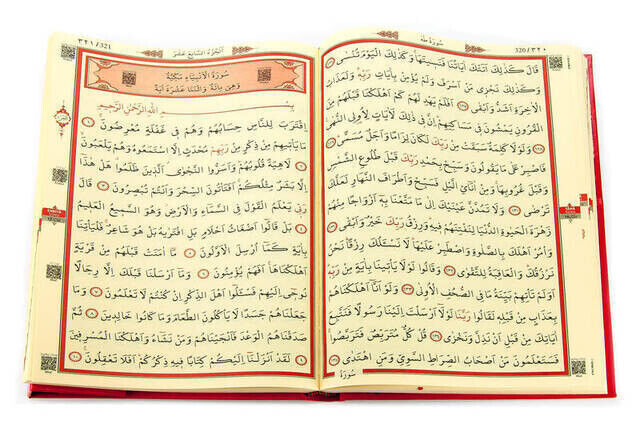 سُورَةُ طٰهٰ
320/٣٢٠
قَالَ كَذٰلِكَ اَتَتْكَ اٰيَاتُنَا فَنَسِيتَهَا وَكَذٰلِكَ الْيَوْمَ تُنْسٰى ﴿١٢٦﴾
وَكَذٰلِكَ نَجْزِي مَنْ اَسْرَفَ وَلَمْ يُؤْمِنْ بِاٰيَاتِ رَبِّهِ وَلَعَذَابُ
الْاٰخِرَةِ اَشَدُّ وَاَبْقٰى ﴿١٢٧﴾ اَفَلَمْ يَهْدِ لَهُمْ كَمْ اَهْلَكْنَا قَبْلَهُمْ مِنَ
الْقُرُونِ يَمْشُونَ فِي مَسَاكِنِهِمْ اِنَّ فِي ذٰلِكَ لَاٰيَاتٍ لِاُولِي النُّهٰى
﴿١٢٨﴾ وَلَوْلَا كَلِمَةٌ سَبَقَتْ مِنْ رَبِّكَ لَكَانَ لِزَامًا وَاَجَلٌ مُسَمًّى ﴿١٢٩﴾
فَاصْبِرْ عَلٰى مَا يَقُولُونَ وَسَبِّحْ بِحَمْدِ رَبِّكَ قَبْلَ طُلُوعِ الشَّمْسِ
وَقَبْلَ غُرُوبِهَا وَمِنْ اٰنَائِ الَّيْلِ فَسَبِّحْ وَاَطْرَافَ النَّهَارِ لَعَلَّكَ
تَرْضٰى ﴿١٣٠﴾ وَلَا تَمُدَّنَّ عَيْنَيْكَ اِلٰى مَا مَتَّعْنَا بِهِ اَزْوَاجًا مِنْهُمْ
زَهْرَةَ الْحَيٰوةِ الدُّنْيَا لِنَفْتِنَهُمْ فِيهِ وَرِزْقُ رَبِّكَ خَيْرٌ وَاَبْقٰى ﴿١٣١﴾
وَأْمُرْ اَهْلَكَ بِالصَّلٰوةِ وَاصْطَبِرْ عَلَيْهَا لَا نَسْـَٔلُكَ رِزْقًا نَحْنُ
نَرْزُقُكَ وَالْعَاقِبَةُ لِلتَّقْوٰى ﴿١٣٢﴾ وَقَالُوا لَوْلَا يَأْتِينَا بِاٰيَةٍ مِنْ رَبِّهِ
اَوَلَمْ تَأْتِهِمْ بَيِّنَةُ مَا فِي الصُّحُفِ الْاُولٰى ﴿١٣٣﴾ وَلَوْ اَنَّا اَهْلَكْنَاهُمْ
بِعَذَابٍ مِنْ قَبْلِهِ لَقَالُوا رَبَّنَا لَوْلَا اَرْسَلْتَ اِلَيْنَا رَسُولًا فَنَتَّبِعَ
اٰيَاتِكَ مِنْ قَبْلِ اَنْ نَذِلَّ وَنَخْزٰى ﴿١٣٤﴾ قُلْ كُلٌّ مُتَرَبِّصٌ فَتَرَبَّصُوا
فَسَتَعْلَمُونَ مَنْ اَصْحَابُ الصِّرَاطِ السَّوِيِّ وَمَنِ اهْتَدٰى ﴿١٣٥﴾
سُورَةُ
اَلْجُزْءُ السَّابِعَ عَشَرَ
321/٣٢١
سُورَةُ الْاَنْبِيَاءِ مَكِّيَّةٌ
وَهِيَ مِائَةٌ وَاثْنَتَا عَشْرَةَ اٰيَةً
بِسْمِ اللّٰهِ الرَّحْمٰنِ الرَّحِيمِ
اِقْتَرَبَ لِلنَّاسِ حِسَابُهُمْ وَهُمْ فِي غَفْلَةٍ مُعْرِضُونَ ﴿١﴾
مَا يَأْتِيهِمْ مِنْ ذِكْرٍ مِنْ رَبِّهِمْ مُحْدَثٍ اِلَّا اسْتَمَعُوهُ وَهُمْ يَلْعَبُونَ
﴿٢﴾ لَاهِيَةً قُلُوبُهُمْ وَاَسَرُّوا النَّجْوٰى الَّذِينَ ظَلَمُوا هَلْ هٰذَا
اِلَّا بَشَرٌ مِثْلُكُمْ اَفَتَأْتُونَ السِّحْرَ وَاَنْتُمْ تُبْصِرُونَ ﴿٣﴾ قَالَ
رَبِّي يَعْلَمُ الْقَوْلَ فِي السَّمَاءِ وَالْاَرْضِ وَهُوَ السَّمِيعُ الْعَلِيمُ
﴿٤﴾ بَلْ قَالُوا اَضْغَاثُ اَحْلَامٍ بَلِ افْتَرٰيهُ بَلْ هُوَ شَاعِرٌ فَلْيَأْتِنَا
بِاٰيَةٍ كَمَا اُرْسِلَ الْاَوَّلُونَ ﴿٥﴾ مَا اٰمَنَتْ قَبْلَهُمْ مِنْ قَرْيَةٍ
اَهْلَكْنَاهَا اَفَهُمْ يُؤْمِنُونَ ﴿٦﴾ وَمَا اَرْسَلْنَا قَبْلَكَ اِلَّا رِجَالًا
نُوحِي اِلَيْهِمْ فَسْـَٔلُوا اَهْلَ الذِّكْرِ اِنْ كُنْتُمْ لَا تَعْلَمُونَ ﴿٧﴾ وَمَا
جَعَلْنَاهُمْ جَسَدًا لَا يَأْكُلُونَ الطَّعَامَ وَمَا كَانُوا خَالِدِينَ ﴿٨﴾ ثُمَّ
صَدَقْنَاهُمُ الْوَعْدَ فَاَنْجَيْنَاهُمْ وَمَنْ نَشَاءُ وَاَهْلَكْنَا الْمُسْرِفِينَ
﴿٩﴾ لَقَدْ اَنْزَلْنَا اِلَيْكُمْ كِتَابًا فِيهِ ذِكْرُكُمْ اَفَلَا تَعْقِلُونَ ﴿١٠﴾